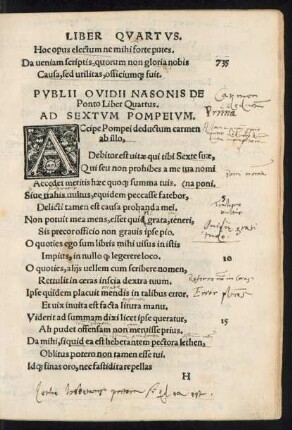 LIBER QVARTVS.
Hoc opus electum ne mihi forte putes.
Da veniam scriptis, quorum non gloria nobis 735
Causa, sed utilitas, officiumq; fuit.
PVBLII OVIDII NASONIS DE
Ponto Liber Quartus.
AD SEXTVM POMPEIVM.
ACcipe Pompei deductum carmen
ab illo,
Debitor est uitæ qui tibi Sexte suæ,
Qui seu non prohibes a me tua nomi
Accedet meritis hæc quoq; summa tuis. (na poni,
Siue trahis uultus, equidem peccasse fatebor, 5
Delicti tamen est causa probanda mei.
Non potuit mea mens, esset quin grata, teneri,
Sis precor officio non grauis ipse pio.
O quoties ego sum libris mihi uisus in istis
Impius, in nullo q legerere loco. 10
O quoties, alijs uellem cum scribere nomen,
Rettulit in ceras inscia dextra tuum.
Ipse quidem placuit mendis in talibus error.
Et uix inuita est facta litura manu.
Viderit ad summam dixi licet ipse queratur, 15
Ah pudet offensam non meruisse prius.
Da mihi, siquid ea est hebetantem pectora lethen,
Oblitus potero non tamen esse tui.
Idq; sinas oro, nec fastidita repellas
H
Error